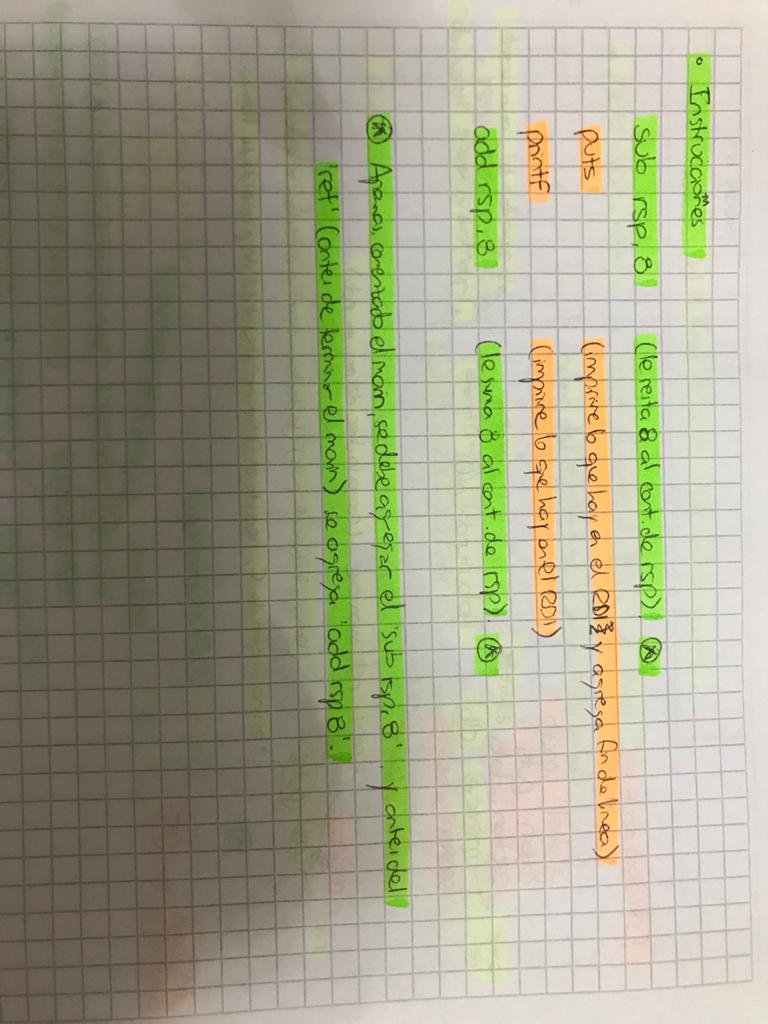 • Instrucciones
sub rsp, 8 (le resta 8 al cont. de rsp). *
puts (imprime lo que hay en el RDI y agrega fin de linea)
printf (imprime lo que hay en el RDI)
add rsp, 8 (le suma 8 al cont. de rsp). *
* Apenas comenzado el main, se debe agregar el 'sub rsp, 8'. y antes del
'ret' (antes de terminar el main) se agrega 'add rsp 8'.